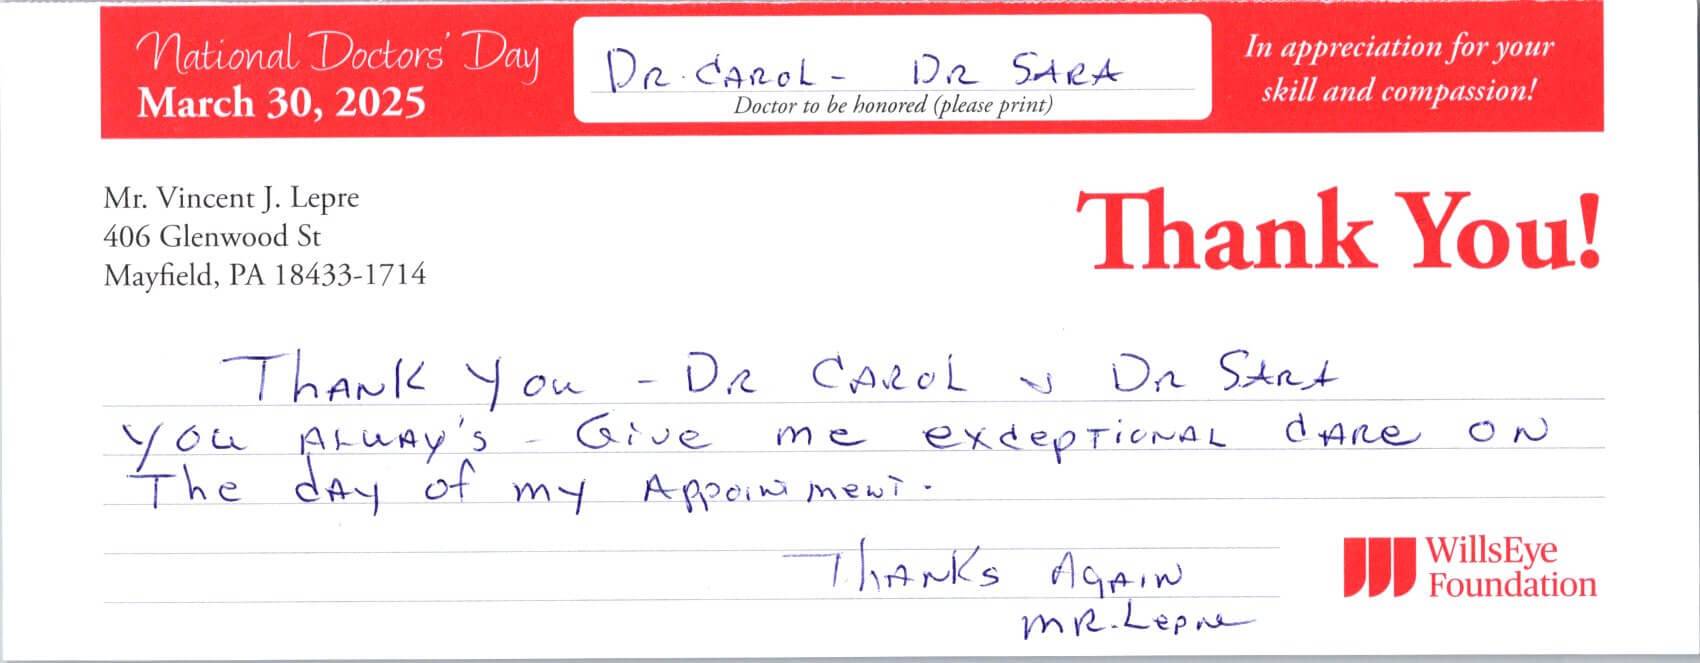 National Doctors' Day
March 30, 2025
DR. CAROL - DR SARA
Doctor to be honored (please print)
In appreciation for your
skill and compassion!
Mr. Vincent J. Lepre
406 Glenwood St
Mayfield, PA 18433-1714
Thank You!
Thank You - DR CAROL & DR SARA
You ALWAY'S - Give me exceptional care on
The day of my Appointment.
Thanks Again
MR. Lepre
WillsEye
Foundation